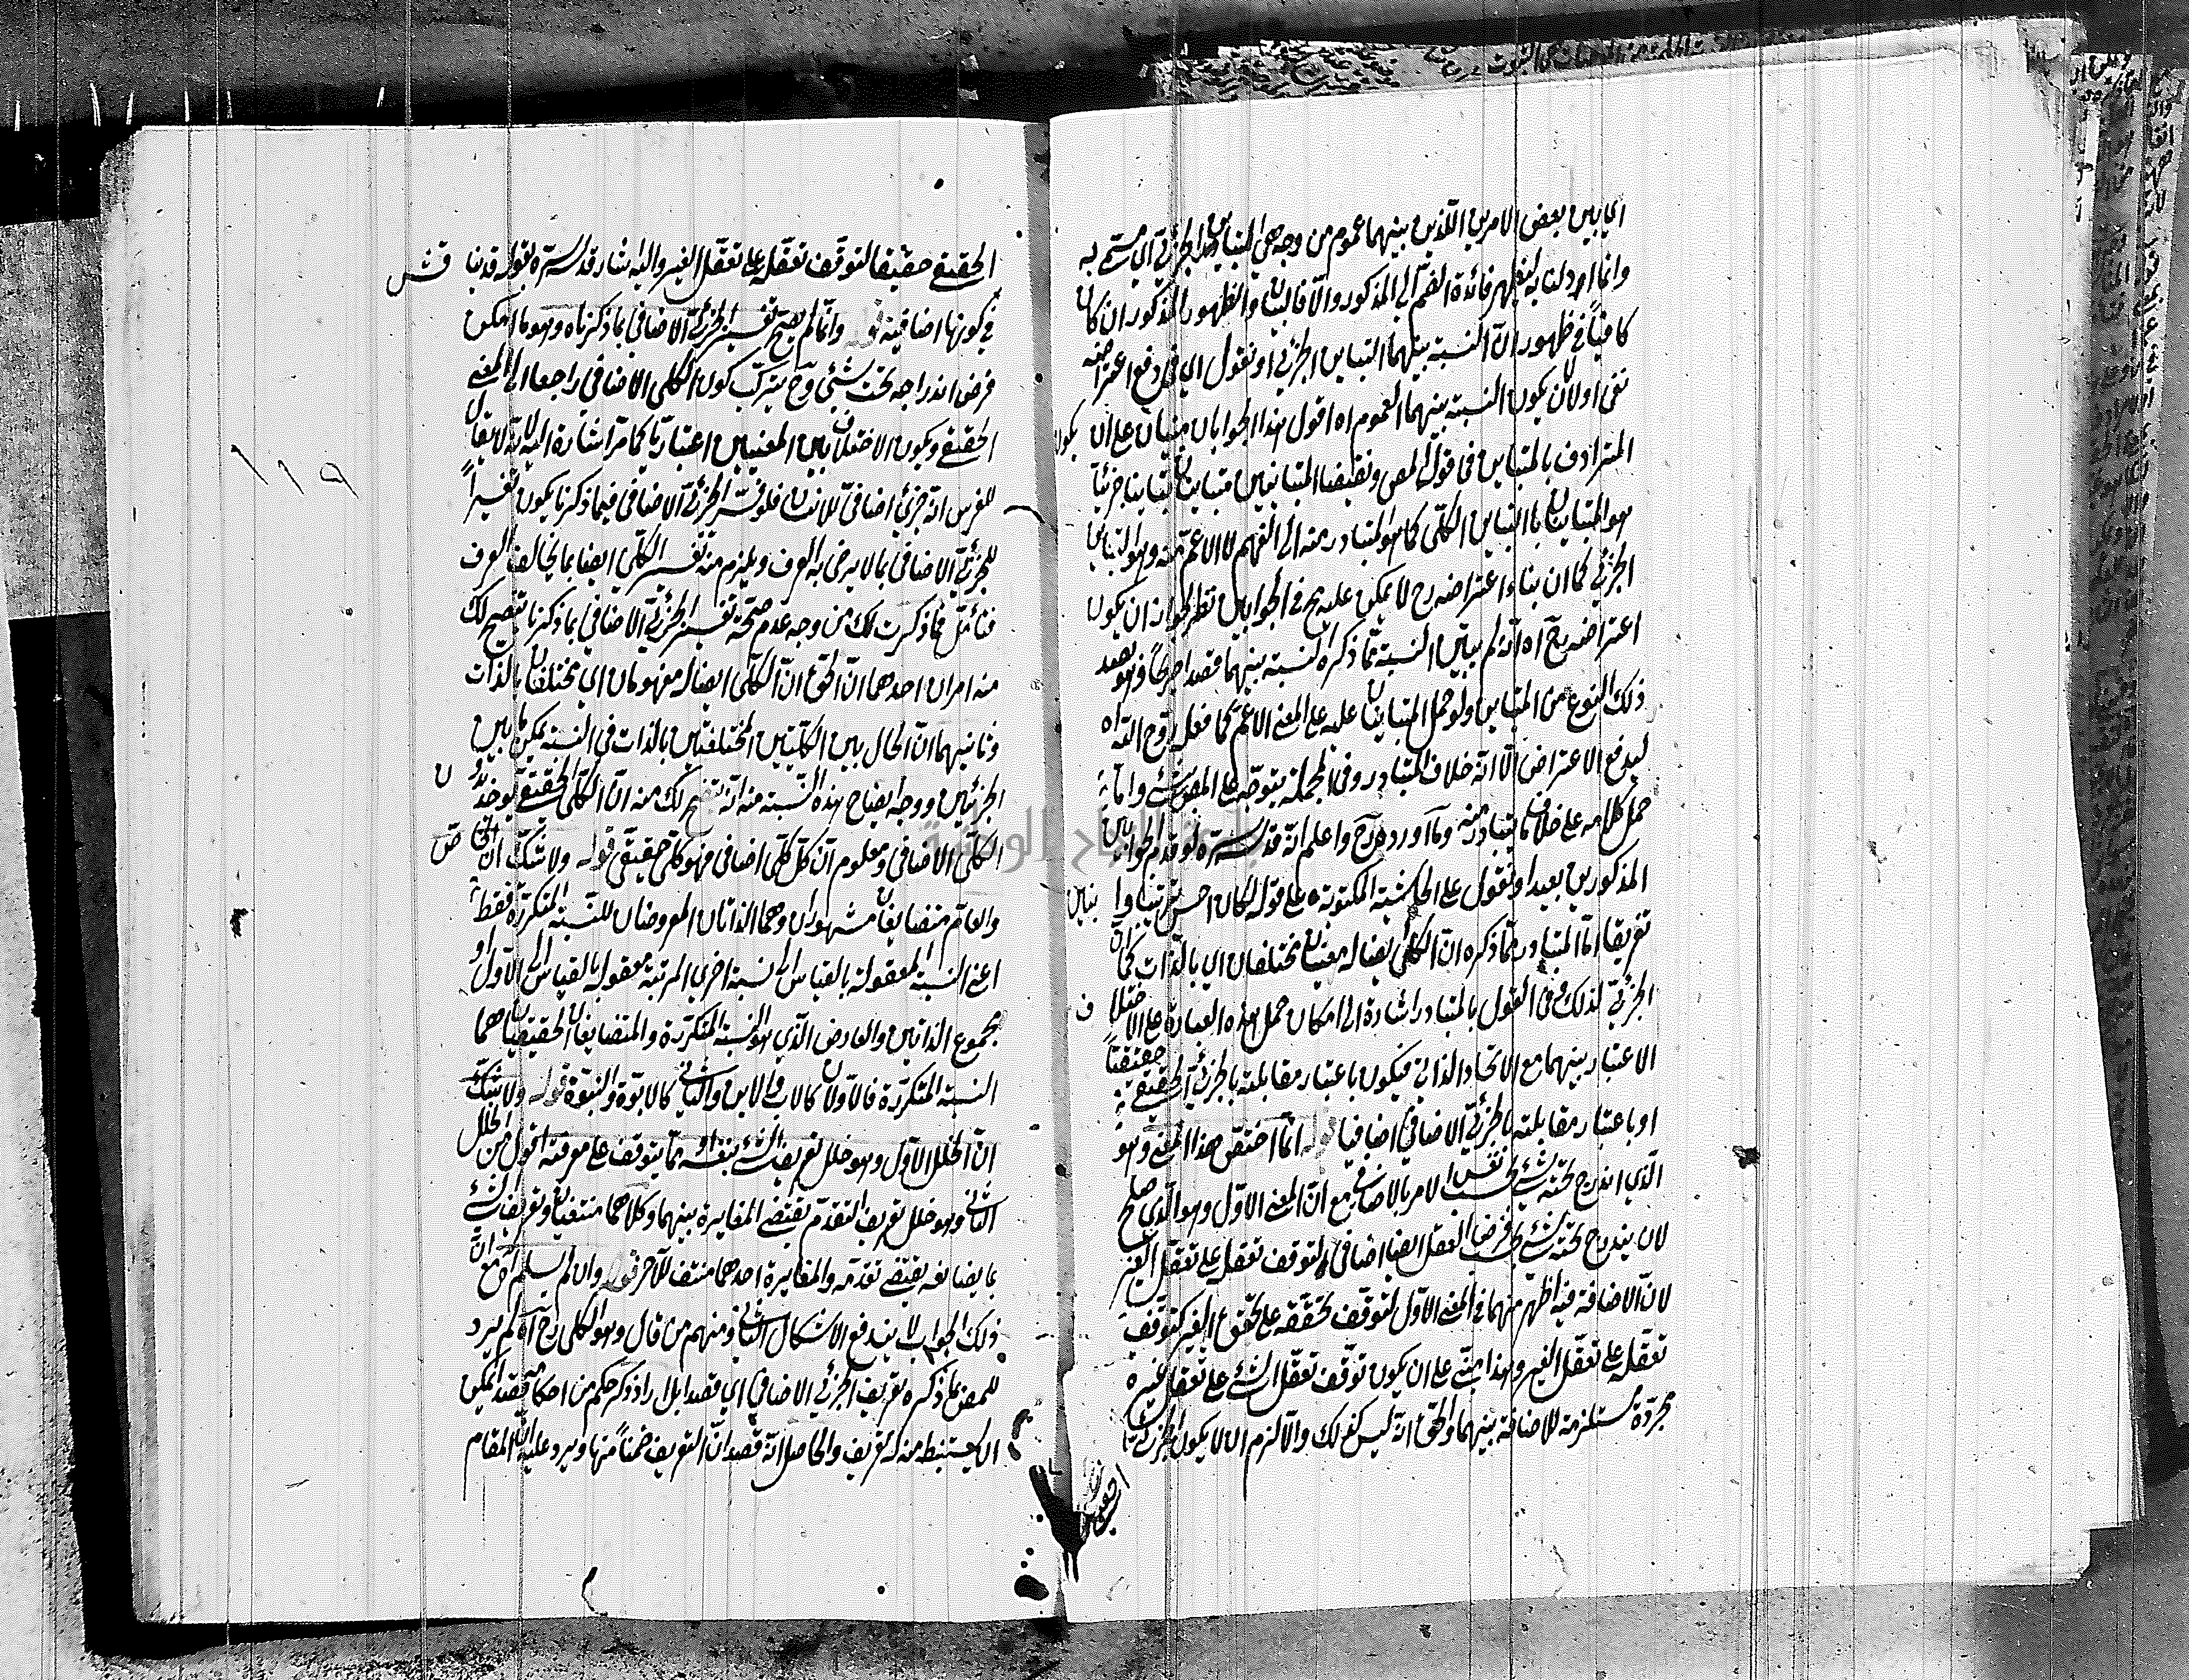 اي بين بعض الامرين اللذين بينهما عموم من وجه هي التباين الجزئي اي مسمى به
وانما اورد لنا به ليظهر فائدة القسم الي المذكور والا فالبيان والظهور المذكور ان كان
كافيًا في ظهور ان النسبة بينهما التباين الجزئي او نقول اي في دفع اعتراضه
نفى اولا ان يكون النسبة بينهما العموم اه اقول هذا الجوابان مبنيان على ان يكون
المترادف بالمتباين في قول المص ونقيضا المتباينين متباينان تباينا جزئيا
هو المتباينان باالتباين الكلى كما هو المتبادر منه الى الفهم لا الاعم منه وهو التباين
الجزئي كما ان بناء اعتراضه رح لا يمكن عليه ح في الجوابان نظر لجواز ان يكون
اعتراضه رح اه انه لم يتبين النسبة مما ذكره النسبة بينهما قصدا صريحًا وهو بصدد
ذلك النوع من المتباين ولو حمل المتباينان عليه على المعنى الاعم كما فعل
ليدفع الاعتراض الا انه خلاف المتبادر وفي الجملة يتوجه على المص شئ واما
حمل كلامه على خلاف ما يتبادر منه وما اورده رح واعلم انه قدس سره لو قدم الجوابين
المذكورين بعيد او نقول على الحاشية المكتوبة على قوله لكان احسن ترتيبا وا
تفريقا انما المتبادر مما ذكره ان الكلي ايضا له معنيان مختلفان اي بالذات كما ان
الجزئي كذلك في في القول بالمتبادر اشارة الى امكان حمل هذه العبارة على الاختلا ف
الاعتبار بينهما مع الاتحاد الذاتي فيكون باعتبار مقابلته بالجزئي الحقيقي حقيقيًا
او باعتبار مقابلته بالجزئي الاضافي اضافيا قوله انما اختص هذا المعنى وهو
الذي اندرج تحته شئ بحسب نفس الامر بالاضافي مع ان المعنى الاول وهو الذي صلح
لان يندرج تحته شئ بحسب فرض العقل ايضا اضافي لتوقف تعقله على تعقل الغير
لان الاضافة فيه اظهر منها في المعنى الاول لتوقف تحققه على تحقق الغير كتوقف
تعقله على تعقل الغير وهذا مبني على ان يكون توقف تعقل الشئ على تعقل غيره
مجردة مستلزمة للاضافة بينهما والحق انه ليس كذلك والا لزم ان لا يكون الجزئي
الحقيقي
الحقيقي حقيقيا لتوقف تعقله على تعقل الغير واليه اشار قدس سره بقوله قدينا قش
في كونها اضافية قوله وانما لم يصح تفسير الجزئي الاضافي بما ذكرناه وهو ما امكن
فرض اندراجه تحت شئ وح يترتب كون الكلى الاضافي راجعا الى المعنى
الحقيقي ويكون الاختلاف بين المعنيين اعتباريا كما مر اشارة اليه لانه لا يقال
للفرس انه جزئي اضافي للانسان فلو فسر الجزئي الاضافي فيما ذكرنا يكون تفسيرًا
للجزئي الاضافي بما لا يرضى به العرف ويلزم منه تفسير الكلي ايضا بما يخالف العرف
فتأمل فما ذكرت لك من وجه عدم صحة تفسير الجزئي الاضافي بما ذكرنا يتضح لك
منه امران احدهما ان الحق ان الكلى ايضا له مفهومان اي مختلفان بالذات
وثانيهما ان الحال بين الكليين المختلفين بالذات في النسبة يمكن ما بين
الجزئيين ووجه ايضاح هذه النسبة منه انه يتضح لك منه ان الكلى الحقيقي يوجد بدو ن
الكلى الاضافي ومعلوم ان كل كلى اضافي فهو كلى حقيقي قوله ولا شك ان الخا ص
والعام متضايفان مشهوران وهما الذاتان المعروضان للنسبة المتكررة فقط
اعنى النسبة المعقولة بالقياس الى نسبة اخرى المرتبة معقولة بالقياس الى الاول او
مجموع الذاتين والعارض الذي هو النسبة المتكررة والمتضايفان الحقيقيان هما
النسبة المتكررة فالاولان كالاب والابن والثاني كالابوة والبنوة قوله ولا شك
ان الخلل الاول وهو خلل تعريف الشئ بنفسه مما يتوقف على معرفته اقول من الخلل
الثاني وهو خلل تعريف التقدم يقتضي المغايرة بينهما وكلاهما منتفيان وتعريف الشئ
بما يضايفه يقتضي تقدمه والمغايرة احدهما منتف للآخر قوله وان لم يسلم اه مع ان
ذلك الجواب لا يندفع الاشكال الثاني ومنهم من قال وهو الكلى رح اه لم يرد
المص بما ذكره تعريف الجزئي الاضافي اي قصدا بل اراد ذكر حكم من احكامه فقد يمكن
ان يستنبط منه له تعريف والحاصل انه قصد ان التعريف ضمنًا منها ويرد عليه ان المقام
١١٩